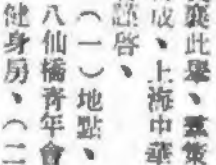 襄此舉、羣策
成、上海中華
謹啓、
（一）地點、
八仙橋青年會
健身房、（二